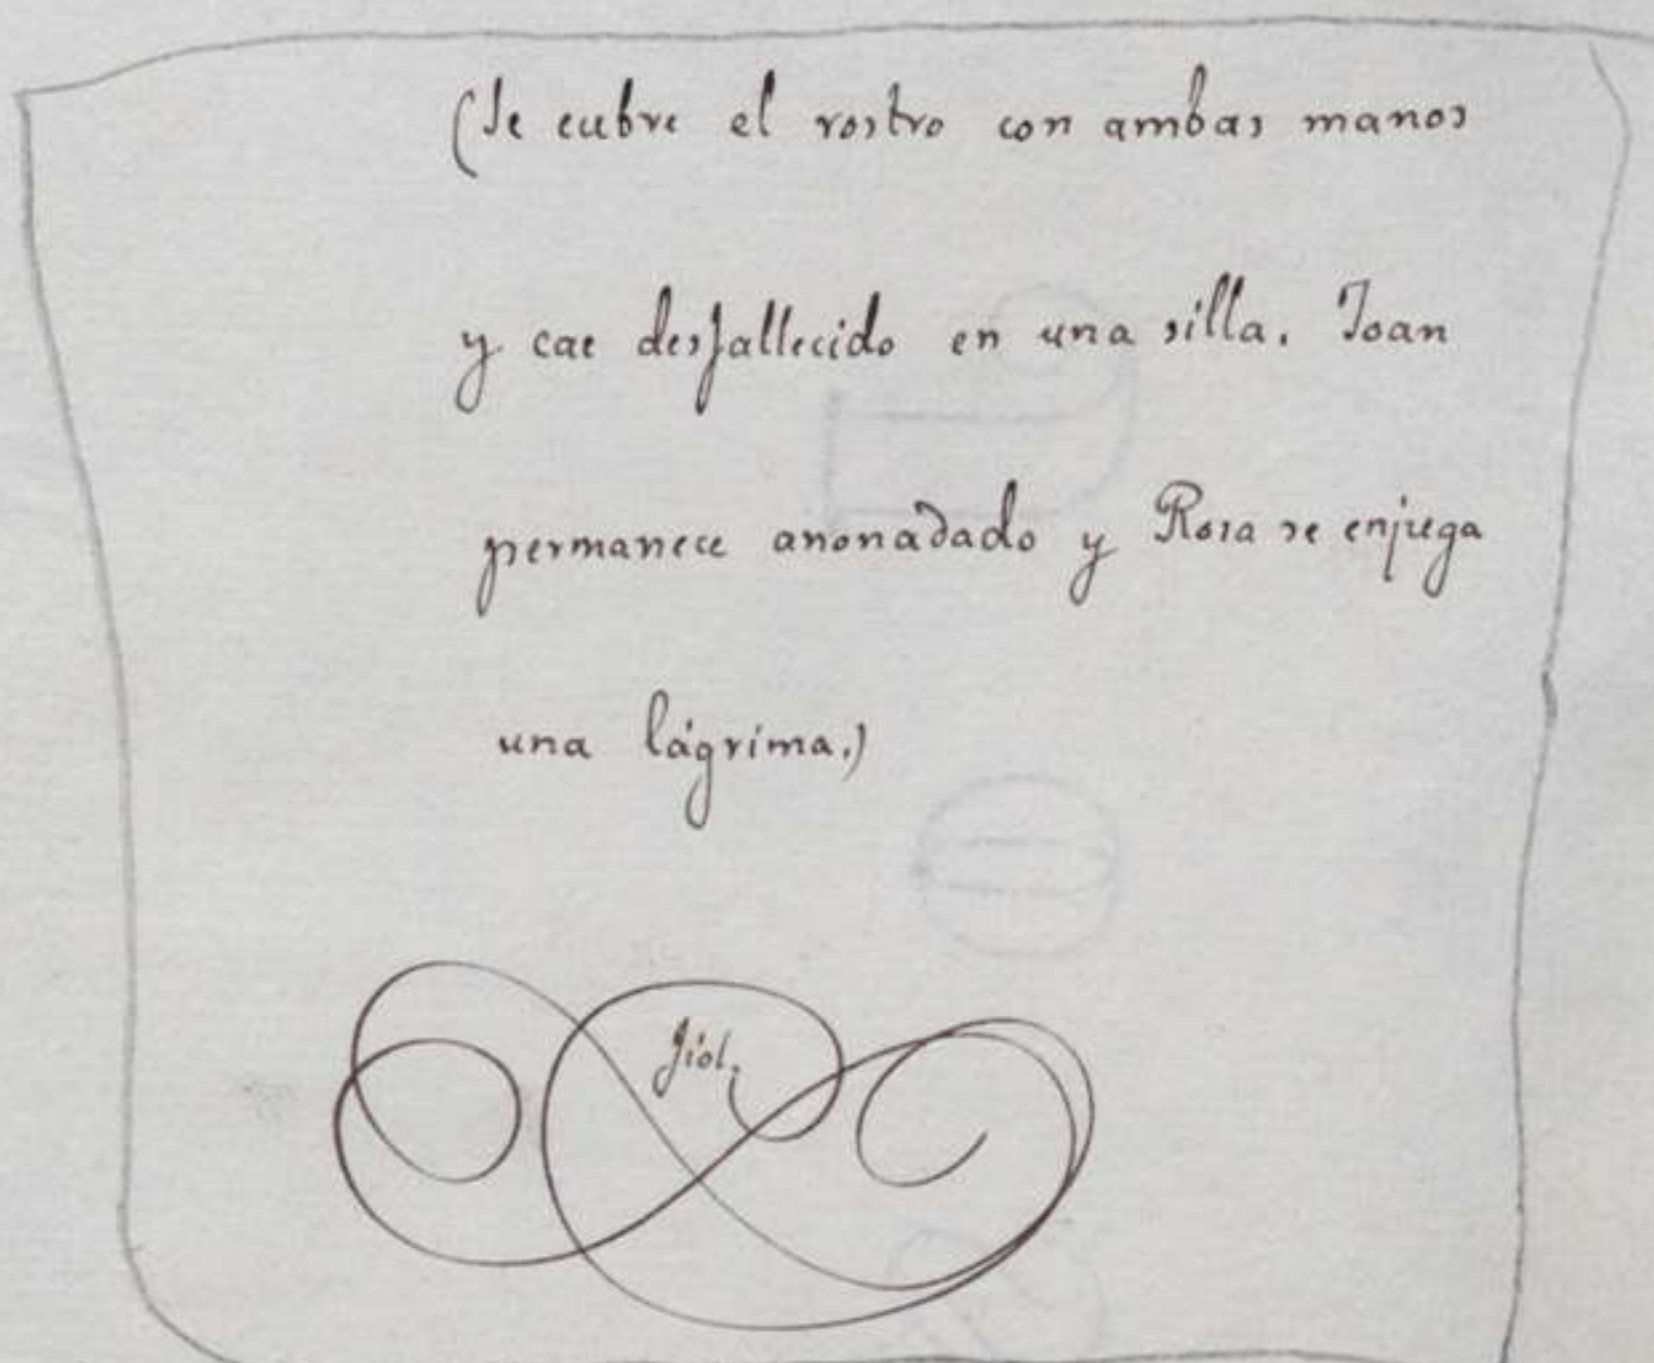 (Se cubre el rostro con ambas manos
y cae desfallecido en una silla. Joan
permanece anonadado y Rosa se enjuga
una lágrima.)